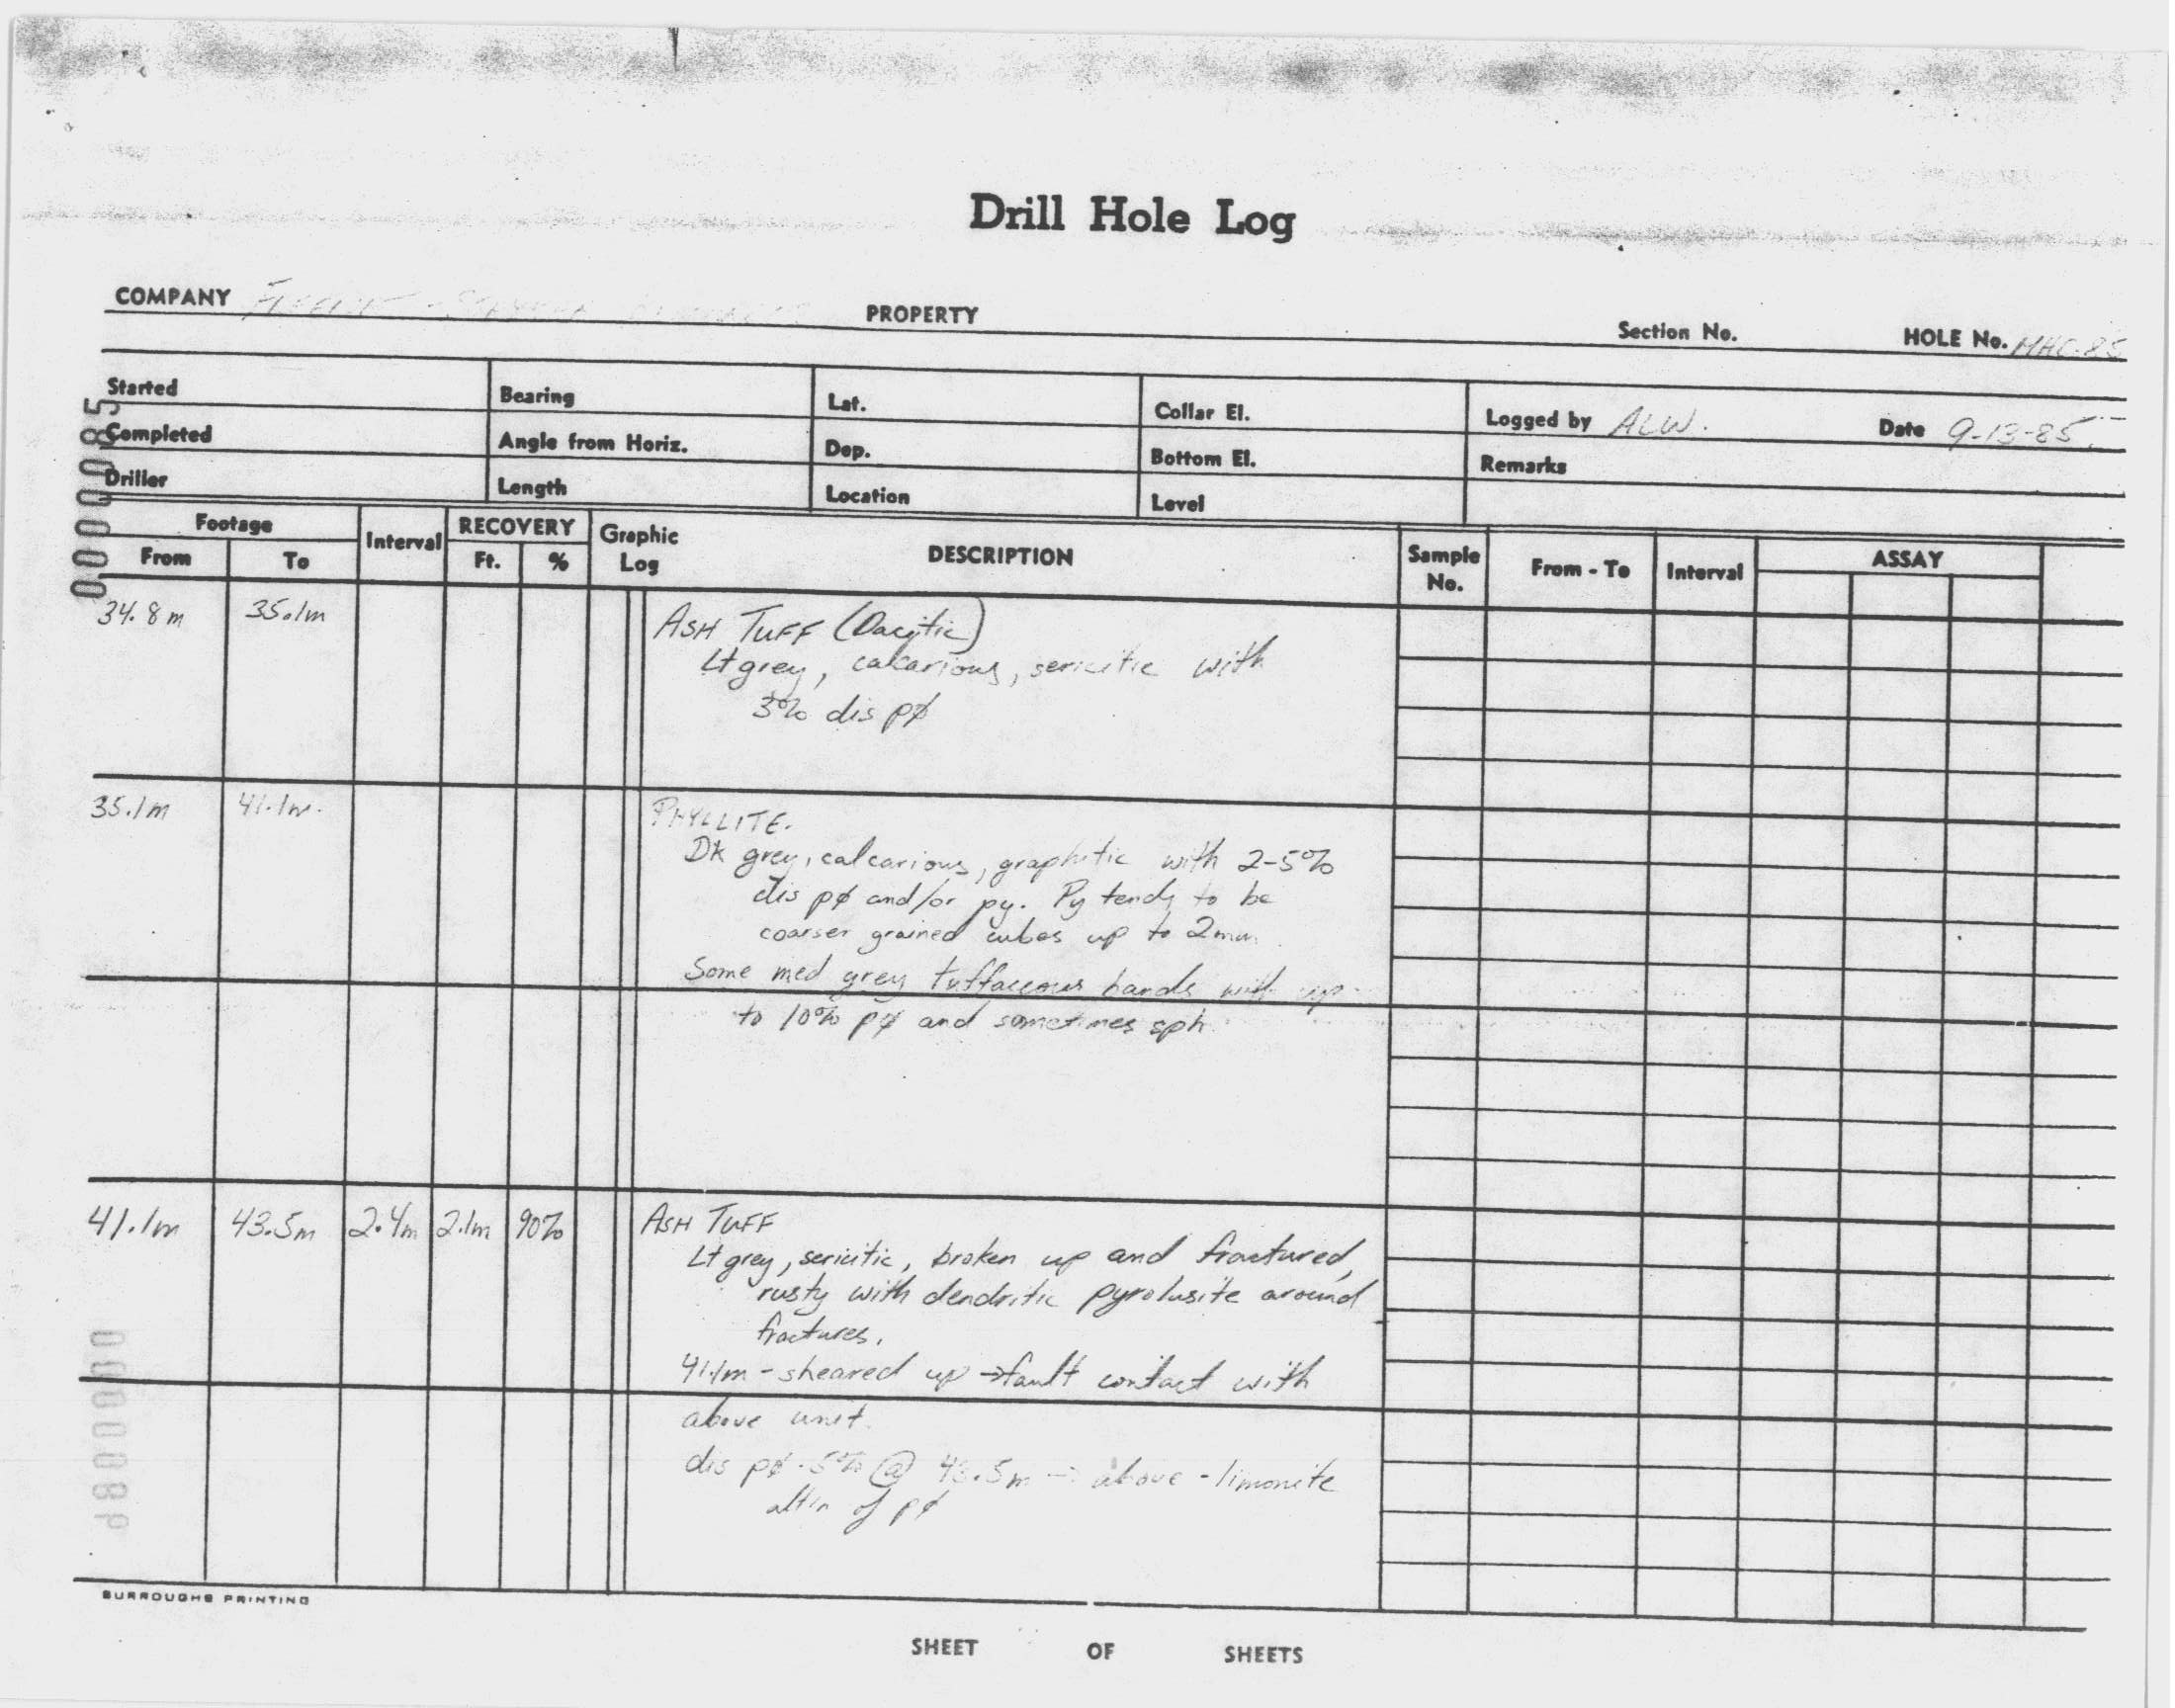 Drill Hole Log
COMPANY PROPERTY Section No. HOLE No.
Started Bearing Lat. Collar El. Logged by ALW. Date 9-13-85.
Completed Angle from Horiz. Dep. Bottom El. Remarks
Driller Length Location Level
Footage Interval RECOVERY Graphic Log DESCRIPTION Sample No. From - To Interval ASSAY
From To Ft. %
34.8m 35.1m ASH TUFF (Dacitic)
Lt grey, calcarious, sericitic with
3% dis pø
35.1m 41.1m. PHYLLITE.
Dk grey, calcarious, graphitic with 2-5%
dis pø and/or py. Py tends to be
coarser grained cubes up to 2mm
Some med grey tuffaceous bands with up
to 10% pø and sometimes sph.
41.1m 43.5m 2.4m 2.1m 90% ASH TUFF
Lt grey, sericitic, broken up and fractured,
rusty with dendritic pyrolusite around
fractures.
41.1m - sheared up → fault contact with
above unit.
dis pø - 5% @ 43.5m → above - limonite
alt'n of pø
BURROUGHS PRINTING
SHEET OF SHEETS